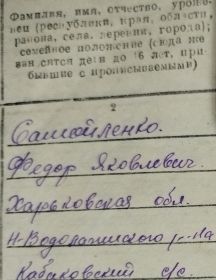 Фамилия, имя, отчество, уроже-
нец (республики, края, области,
района, села, деревни, города);
семейное положение (сюда же
вносятся дети до 16 лет, при-
бывшие с прописываемыми)
2
Самойленко.
Федор Яковлевич.
Харьковская обл.
Н-Водолажского р-на
Караковский с/с.